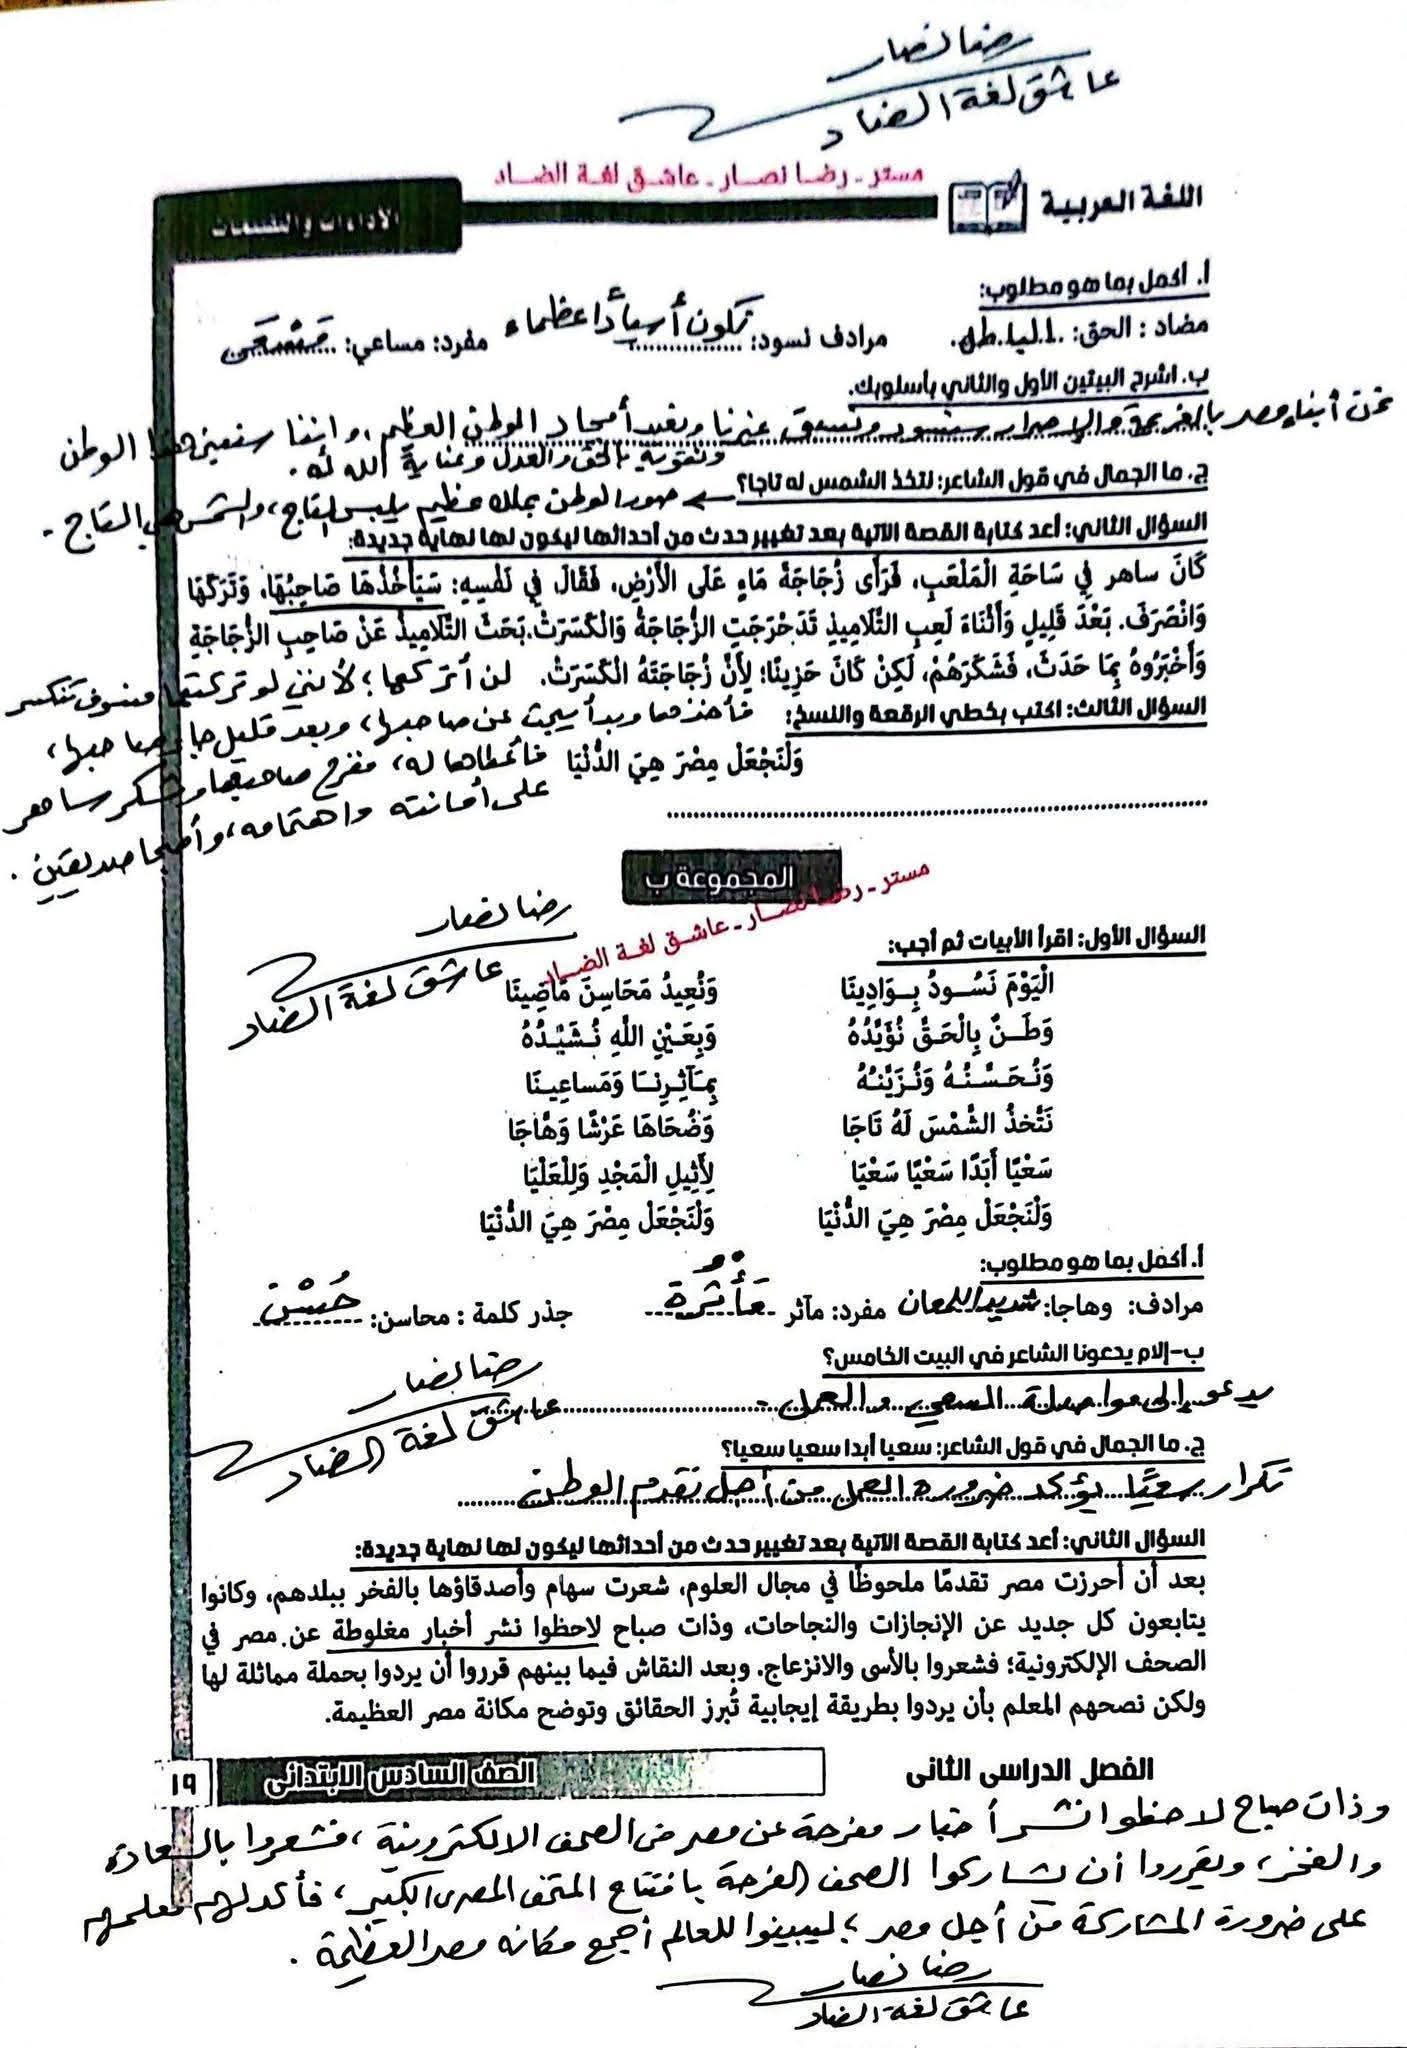 رضا نصار
عاشق لغة الضاد
مستر - رضا نصار - عاشق لغة الضاد
اللغة العربية
الأداءات والتقييمات
أ. أكمل بما هو مطلوب:
مضاد : الحق: الباطل. مرادف نسود: نكون أسياداً عظماء مفرد: مساعي: مَسْعَى
ب. اشرح البيتين الأول والثاني بأسلوبك.
نحن أبناء مصر بالعزيمة والإصرار سنسود ونسبق غيرنا ونعيد أمجاد الوطن العظيم، وإننا سنعين هذا الوطن
ونقويه بالحق والعدل وعناية الله له.
ج. ما الجمال في قول الشاعر: نتخذ الشمس له تاجا؟ صور الوطن بملك عظيم يلبس التاج، والشمس هي التاج.
السؤال الثاني: أعد كتابة القصة الآتية بعد تغيير حدث من أحداثها ليكون لها نهاية جديدة:
كَانَ ساهر فِي سَاحَةِ الْمَلْعَبِ، فَرَأَى زُجَاجَةَ مَاءٍ عَلَى الْأَرْضِ، فَقَالَ فِي نَفْسِهِ: سَيَأْخُذُهَا صَاحِبُهَا، وَتَرَكَهَا
وَانْصَرَفَ. بَعْدَ قَلِيلٍ وَأَثْنَاءَ لَعِبِ التَّلَامِيذِ تَدَحْرَجَتِ الزُّجَاجَةُ وَانْكَسَرَتْ. بَحَثَ التَّلَامِيذُ عَنْ صَاحِبِ الزُّجَاجَةِ
وَأَخْبَرُوهُ بِمَا حَدَثَ، فَشَكَرَهُمْ، لَكِنْ كَانَ حَزِينًا؛ لِأَنَّ زُجَاجَتَهُ انْكَسَرَتْ. لن أتركها؛ لأنني لو تركتها فسوف تنكسر
السؤال الثالث: اكتب بخطي الرقعة والنسخ: فأخذها وبدأ يبحث عن صاحبها، وبعد قليل جاء صاحبها،
وَلْنَجْعَلْ مِصْرَ هِيَ الدُّنْيَا فأعطاها له، ففرح صاحبها وشكر ساهر
على أمانته واهتمامه، وأصبحا صديقين.
المجموعة ب
مستر - رضا نصار - عاشق لغة الضاد
رضا نصار
عاشق لغة الضاد
السؤال الأول: اقرأ الأبيات ثم أجب:
الْيَوْمَ نَسُودُ بِوَادِينَا وَنُعِيدُ مَحَاسِنَ مَاضِينَا
وَطَنٌ بِالْحَقِّ نُؤَيِّدُهُ وَبِعَيْنِ اللَّهِ نُشَيِّدُهُ
وَنُحَسِّنُهُ وَنُزَيِّنُهُ بِمَآثِرِنَا وَمَسَاعِينَا
نَتَّخِذُ الشَّمْسَ لَهُ تَاجَا وَضُحَاهَا عَرْشًا وَهَّاجَا
سَعْيًا أَبَدًا سَعْيًا سَعْيَا لِأَثِيلِ الْمَجْدِ وَلِلْعَلْيَا
وَلْنَجْعَلْ مِصْرَ هِيَ الدُّنْيَا وَلْنَجْعَلْ مِصْرَ هِيَ الدُّنْيَا
أ. أكمل بما هو مطلوب:
مرادف: وهاجا: شديد اللمعان مفرد: مآثر مَأْثُرَة جذر كلمة : محاسن: حُسْن
ب-إلام يدعونا الشاعر في البيت الخامس؟
يدعو إلى مواصلة السعي والعمل.
رضا نصار
عاشق لغة الضاد
ج. ما الجمال في قول الشاعر: سعيا أبدا سعيا سعيا؟
تكرار سعيًا يؤكد ضرورة العمل من أجل تقدم الوطن
السؤال الثاني: أعد كتابة القصة الآتية بعد تغيير حدث من أحداثها ليكون لها نهاية جديدة:
بعد أن أحرزت مصر تقدمًا ملحوظًا في مجال العلوم، شعرت سهام وأصدقاؤها بالفخر ببلدهم، وكانوا
يتابعون كل جديد عن الإنجازات والنجاحات، وذات صباح لاحظوا نشر أخبار مغلوطة عن مصر في
الصحف الإلكترونية؛ فشعروا بالأسى والانزعاج. وبعد النقاش فيما بينهم قرروا أن يردوا بحملة مماثلة لها
ولكن نصحهم المعلم بأن يردوا بطريقة إيجابية تُبرز الحقائق وتوضح مكانة مصر العظيمة.
الفصل الدراسى الثانى
الصف السادس الابتدائى
١٩
وذات صباح لاحظوا نشر أخبار مفرحة عن مصر في الصحف الالكترونية، فشعروا بالسعادة
والفخر، ويقرروا أن يشاركوا الصحف الفرحة بافتتاح المتحف المصرى الكبير، فأكد لهم معلمهم
على ضرورة المشاركة من أجل مصر؛ ليبينوا للعالم أجمع مكانه مصر العظيمة.
رضا نصار
عاشق لغة الضاد